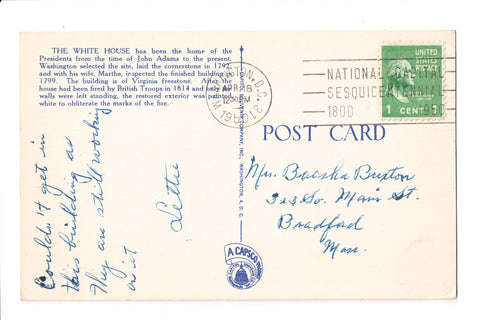 THE WHITE HOUSE has been the home of the
Presidents from the time of John Adams to the present.
Washington selected the site, laid the cornerstone in 1792,
and with his wife, Martha, inspected the finished building in
1799. The building is of Virginia freestone. After the
house had been fired by British Troops in 1814 and only the
walls were left standing, the restored exterior was painted
white to obliterate the marks of the fire.
Couldn't get in
this building as
They are still working
on it
Lettie
WASHINGTON, D.C.
APR 28
12 30 PM
1951
UNITED
STATES
POSTAGE
1 CENT 1
NATIONAL CAPITAL
SESQUICENTENNIAL
1800
POST CARD
Mrs. Buxton
323 So. Main St.
Bradford
Mass.
A CAPSCO